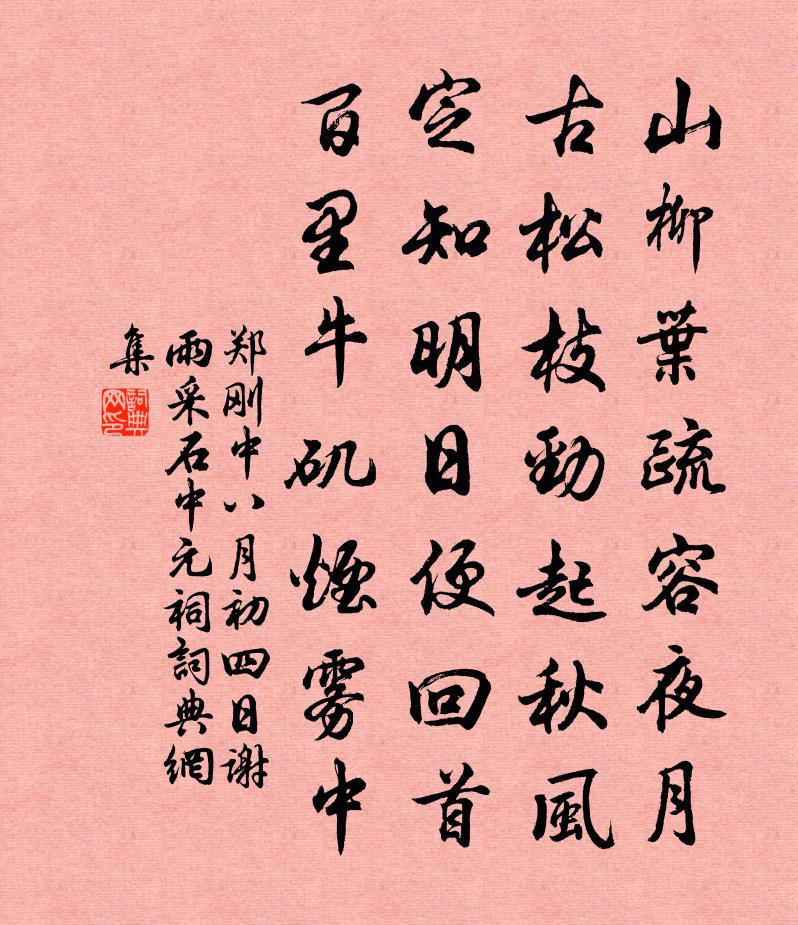 山柳葉疏容夜月
古松枝勁起秋風
定知明日便回首
百里牛矶煙雾中
郑刚中八月初四日谢
雨采石中元祠詞典網
集
詞典網印